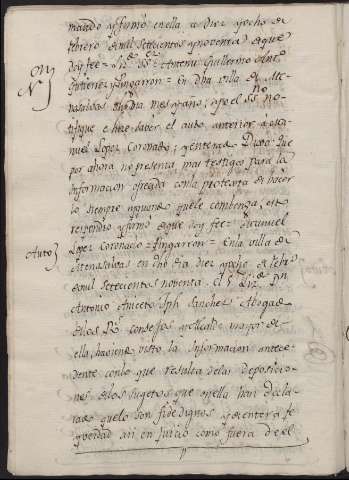 mando y firmó en ella a diez y ocho de
febrero de mil Setecientos y noventa de que
doy fee = Liz.do Sr. Antonu Guillermo Ant.o
Gutierrez y Lingarron = En dha villa de
dia mes y año; yo el SS.no no-
tifique e hize saber el auto anterior a Ma-
nuel Lopez Coronado, y enterado Dixo: Que
por ahora no presenta mas testigos para la
Informacion ofrecida con la protexta de hacer
lo siempre y quando que le combenza, esto
respondio y firmó de que doy fee = Manuel
Auto
Lopez Coronado = Lingarron = En la villa de
en dho dia diez y ocho de febr.o
de mil Setecientos noventa. el S.r Liz.do Dn
Antonio Aniceto Jph Sanchez Abogado
de los R.s Consejos y Alcalde mayor de
ella, haviendo visto la Informacion antece-
dente con lo que resulta de las deposicio-
nes de los sugetos que en ella han decla-
rado que lo son fidedignos y de entera fe
y verdad asi en juicio como fuera de el